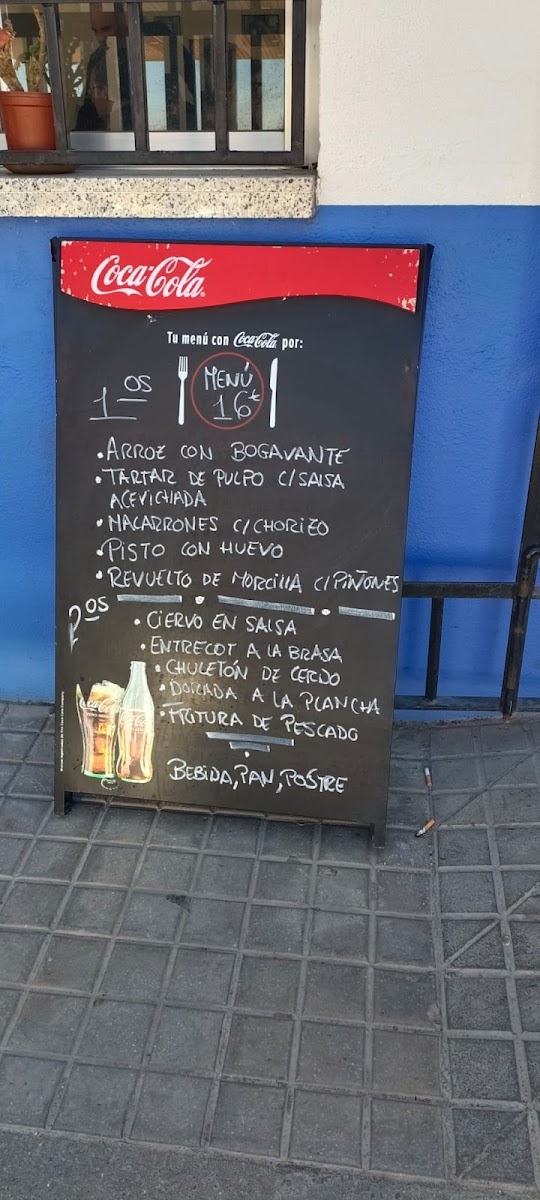 Coca-Cola
Tu menú con Coca-Cola por:
1os
MENÚ
16€
• ARROZ CON BOGAVANTE
• TARTAR DE PULPO C/SALSA
ACEVICHADA
• MACARRONES C/CHORIZO
• PISTO CON HUEVO
• REVUELTO DE MORCILLA C/PIÑONES
2os
• CIERVO EN SALSA
• ENTRECOT A LA BRASA
• CHULETÓN DE CERDO
• DORADA A LA PLANCHA
• FRITURA DE PESCADO
BEBIDA, PAN, POSTRE
Coca-Cola